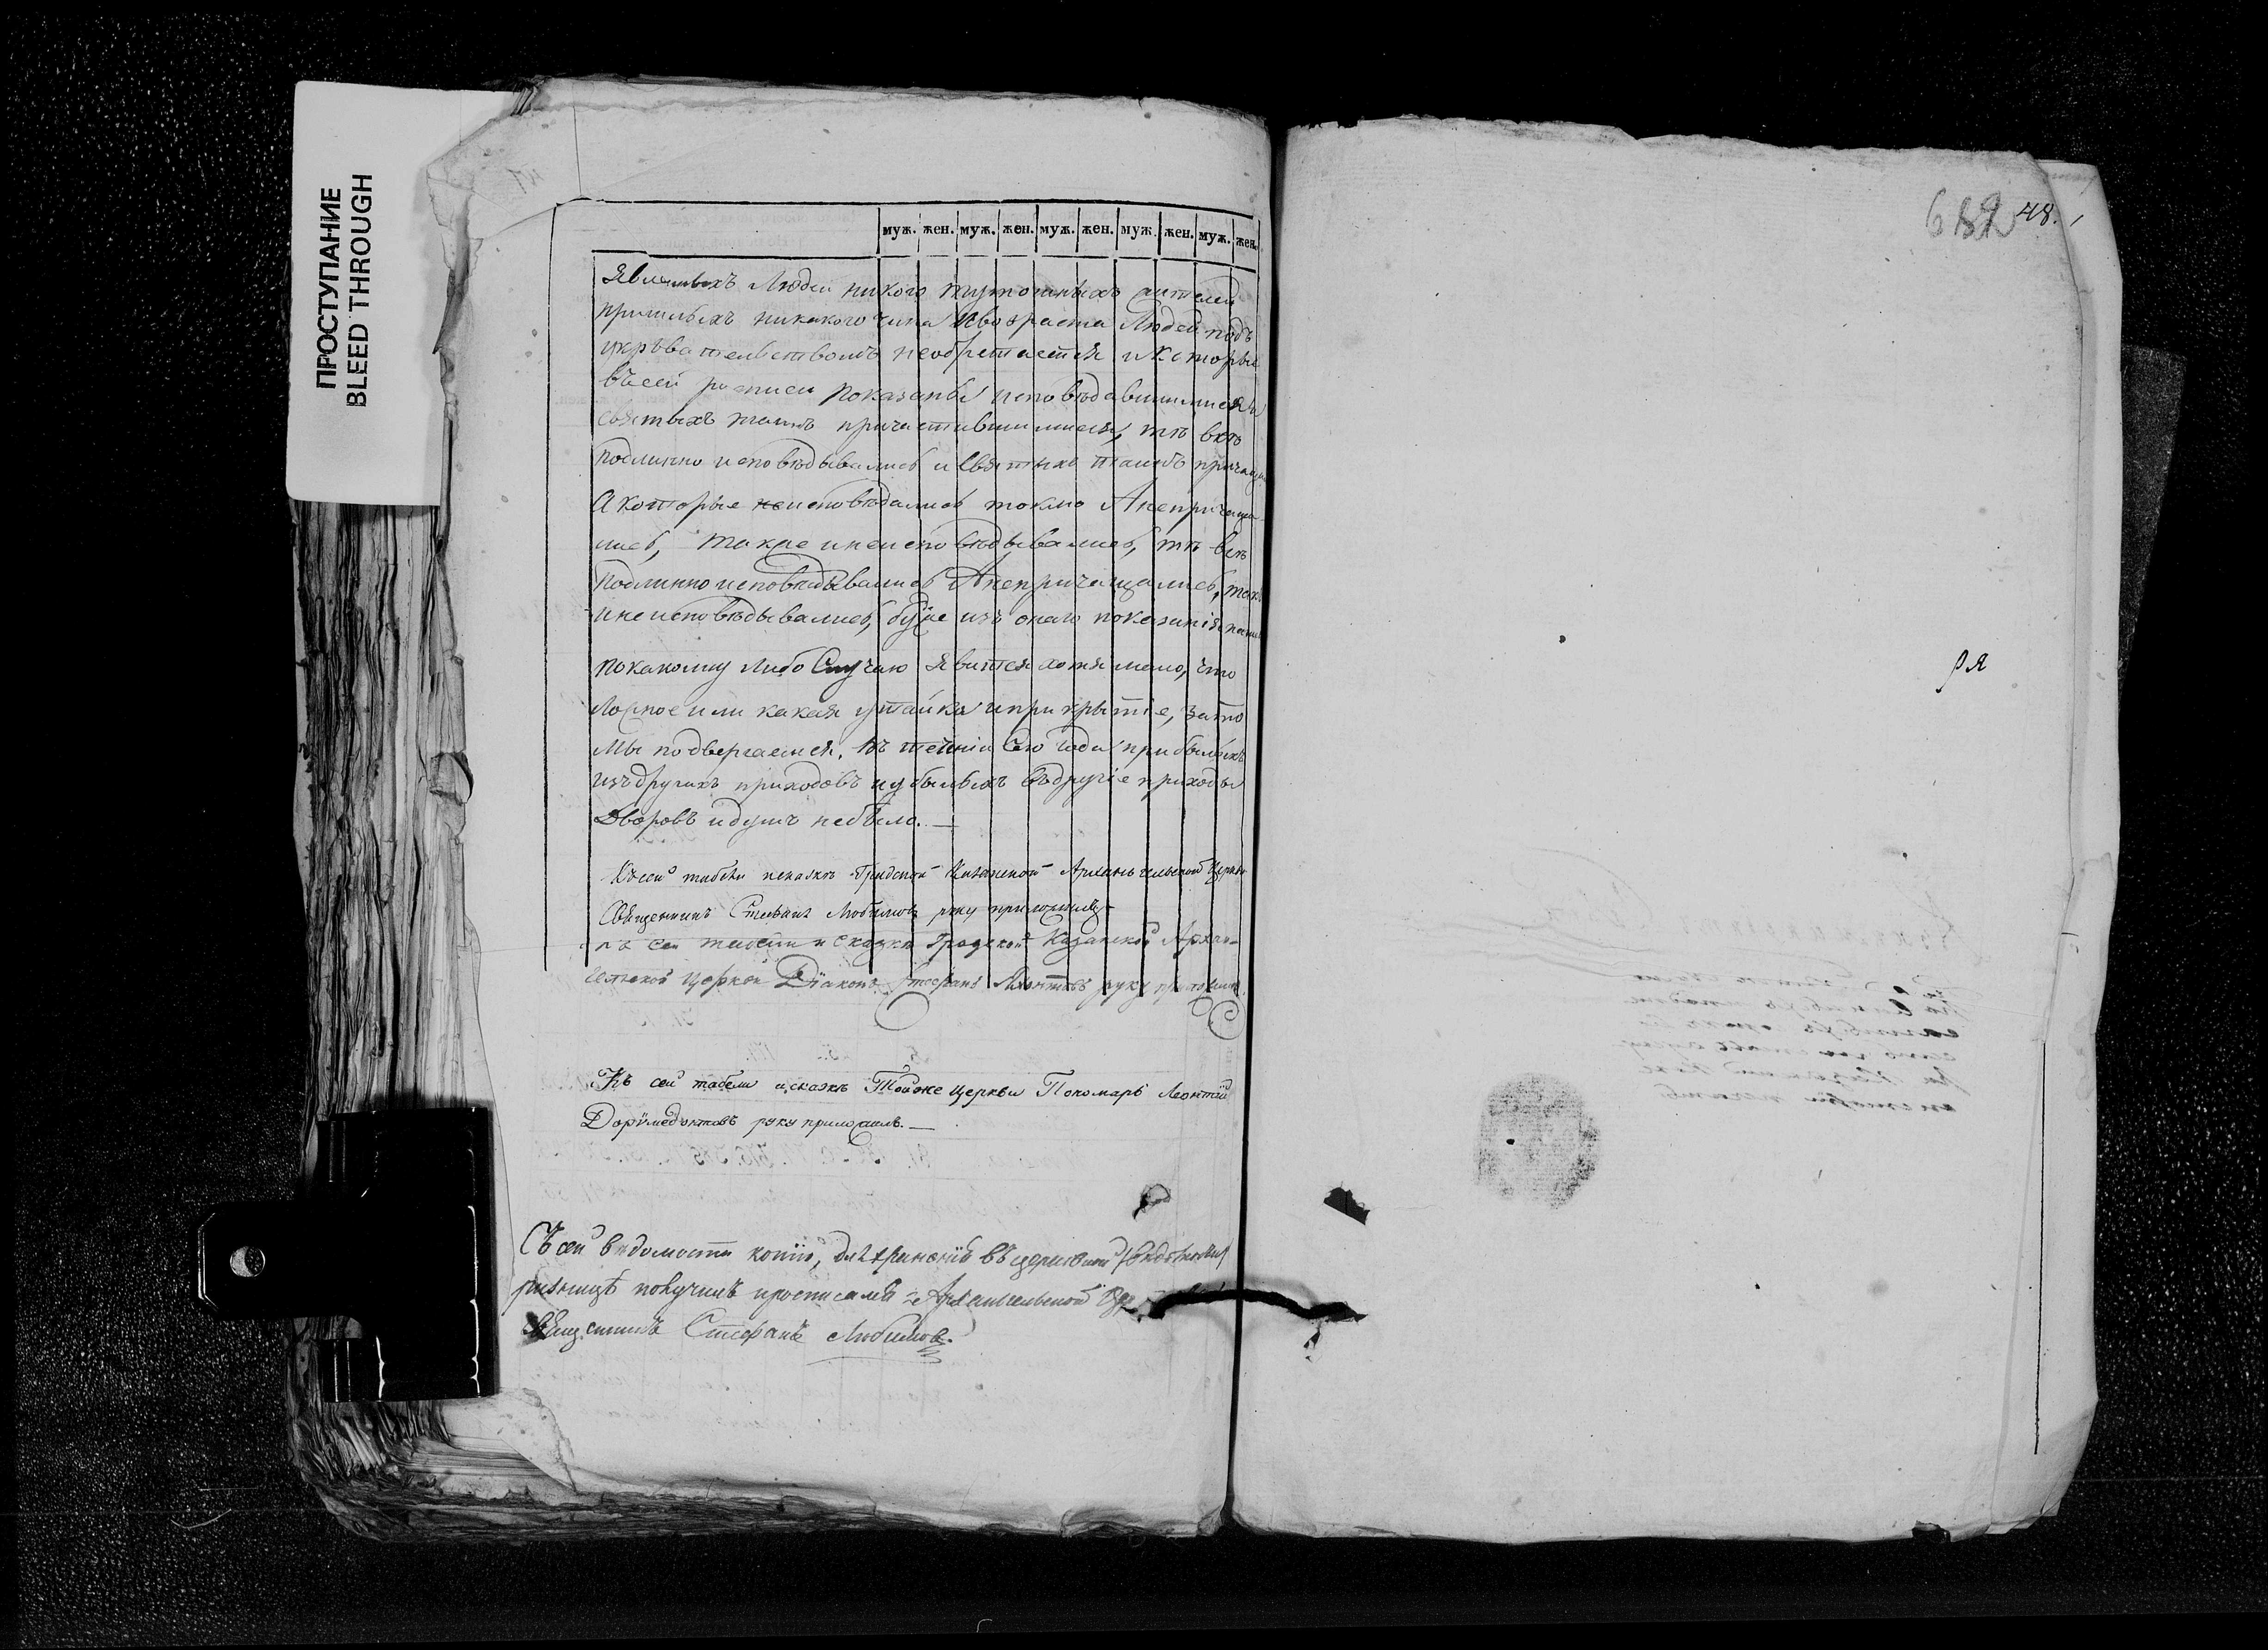 ПРОСТУПАНИЕ
BLEED THROUGH
муж. жен. муж. жен. муж. жен. муж. жен. муж. жен.
Явленныхъ Людей никого тутошныхъ жителей
пришлыхъ никакого чина и возраста Людей подъ
укрывательствомъ необретается и которые
въ сей росписи показаны исповѣдавшимися и
святыхъ таинъ причастившимися, тѣ всѣ
подлинно исповѣдывались и святыхъ таинъ
А которые исповѣдались токмо А непричаща
лись, также и неисповѣдывались, тѣ всѣ
подлинно исповѣдывались А непричащались,
и не исповѣдывались, буде изъ онаго показанія
по какому либо Случаю явится хотя мало, что
ложное или какая утайка и прикрытіе, за то
мы подвергаемся. Въ теченіи Сего года прибылыхъ
изъ другихъ приходовъ и убылыхъ въ другіе приходы
Дворовъ и душъ небыло. —
Къ сей табели Градской Казанской Архангельской Церкви
Священникъ Стефанъ Любимовъ руку приложилъ
къ сей табели и сказки Градской Казанской Архан-
гельской Церкви Діаконъ Стефанъ руку приложилъ
Къ сей табели и сказкѣ Тойже церкви Пономарь Леонтій
Доримедонтовъ руку приложилъ. —
Съ сей вѣдомости копію, для храненія въ церковной
ризницѣ получилъ и росписался Архангельской
священникъ Стефанъ Любимовъ.
682 48.
ря